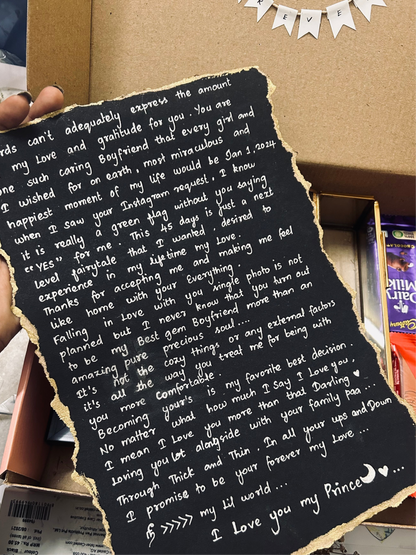 REVE
rds can't adequately express the amount
my Love and gratitude for you. You are
one such caring Boyfriend that every girl and
I wished for on earth, most miraculous and
happiest moment of my life would be Jan 1, 2024
when I saw your Instagram request, I know
it is really a green flag without you saying
"YES" for me. This 45 days is just a next
level fairytale that I wanted, desired to
experience in my lifetime my Love.
Thanks for accepting me and making me feel
like home with your Everything.
Falling in Love with you single photo is not
planned but I never know that you turn out
to be my Best gem Boyfriend more than an
amazing pure precious soul....
It's not the cozy things or any external factors
it's all the way you treat me for being with
you more comfortable.
Becoming your's is my favorite best decision
No matter what how much I say I Love you,
I mean I Love you more than that Darling
Loving you lot alongside with your family paa ...
Through Thick and Thin. In all your ups and Down
I promise to be your forever my Love ...
>>>>> my Lil world ...
I Love you my Prince
Dairy
Milk
Cadbury